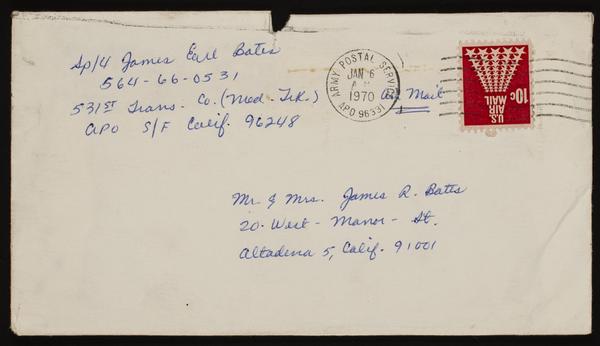 Sp/4 James Earl Bates
564-66-0531
531st Trans. Co. (Med-Trk.)
APO S/F Calif. 96248
ARMY POSTAL SERVICE
JAN 6
1970
APO 96331
Air Mail
U.S.
AIR
MAIL
10c
Mr. & Mrs. James R. Bates
20-West-Manor-St.
Altadena 5, Calif. 91001